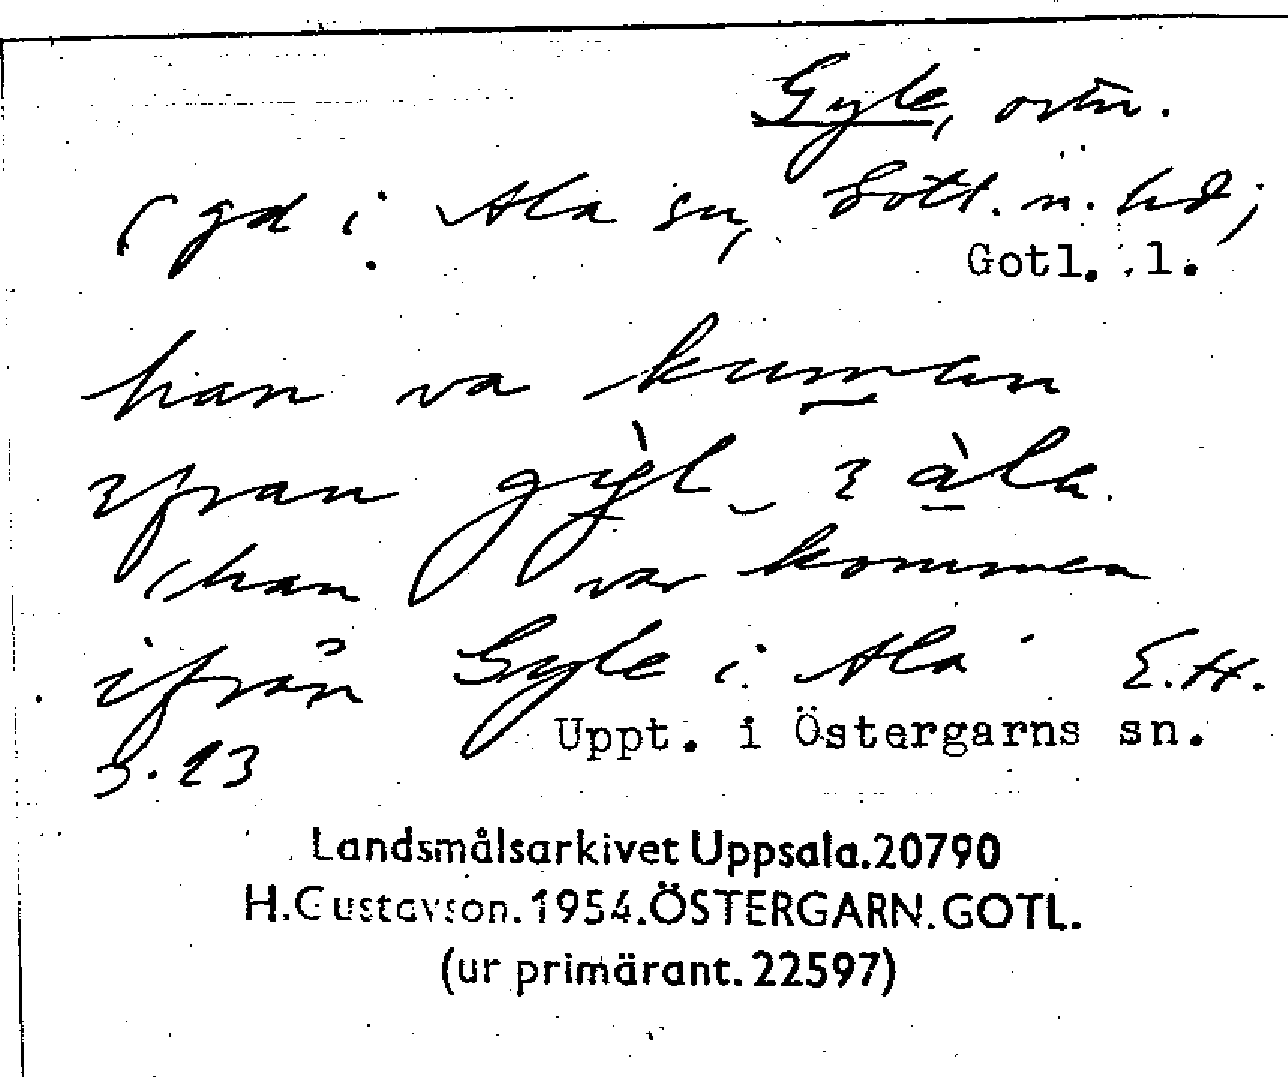 Gyle, ortn.
(gd i Ala sn, Gotl. n. hd;
Gotl. l.
han va kuman
ifran gyl i àla.
(han var kommen
ifrån Gyle i Ala E.H.
3.23
Uppt. i Östergarns sn.
Landsmålsarkivet Uppsala.20790
H.Gustavson.1954.ÖSTERGARN.GOTL.
(ur primärant.22597)